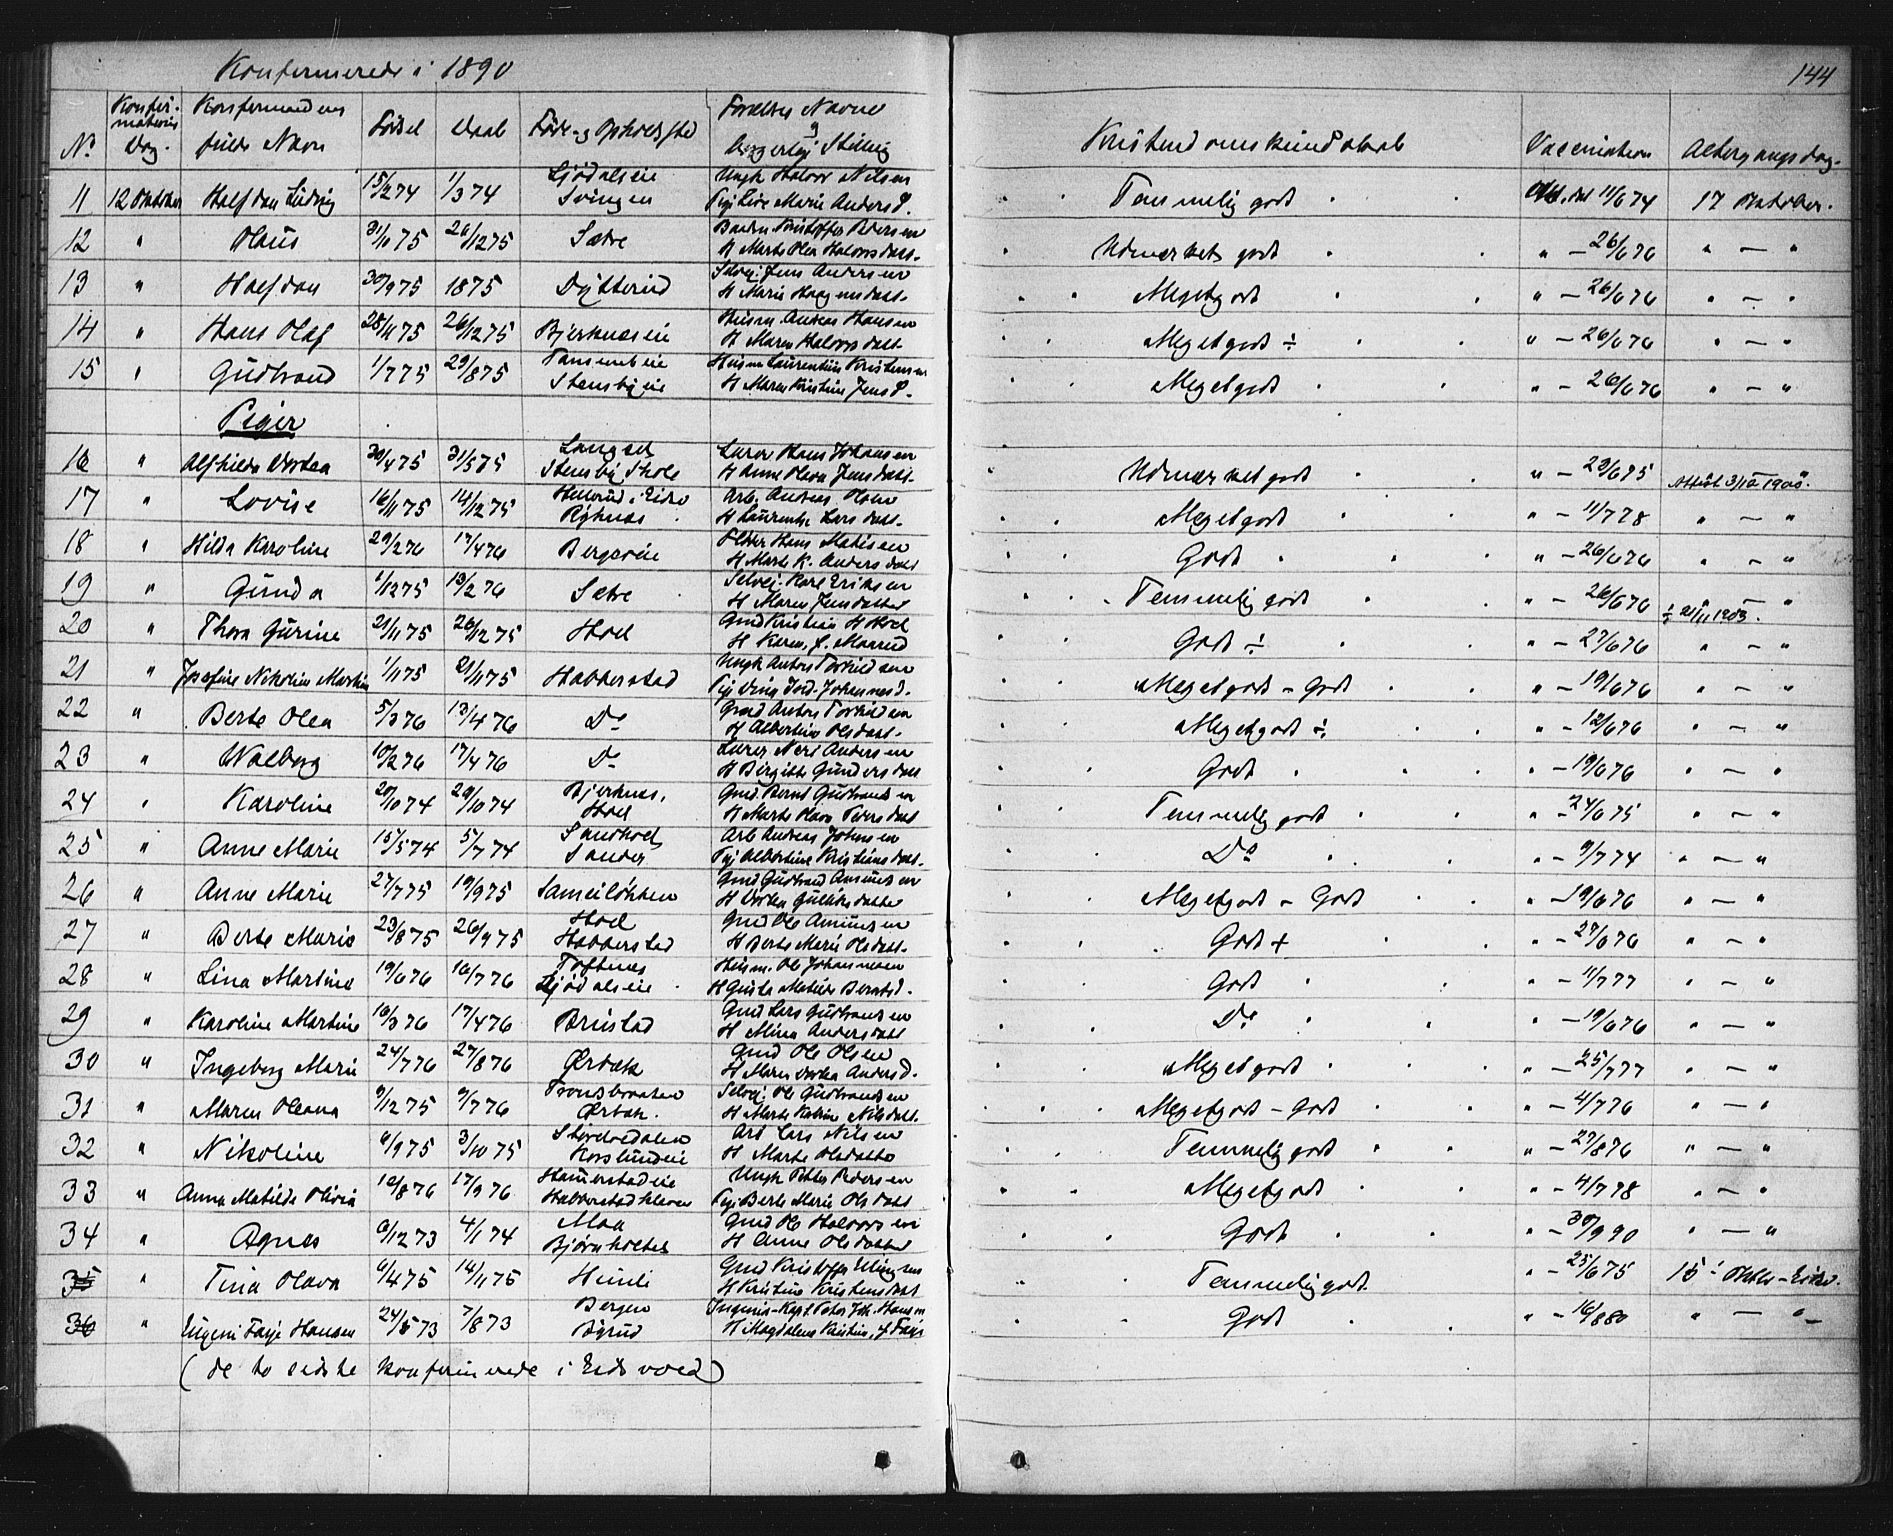 Konfirmerede i 1890
144
No. Konfirmations Dag. Konfirmandens fulde Navn Fødsel Daab Føde- og Opholdssted Forældres Navne og borgerlige Stilling Kristendomskundskab Vaccination Altergangsdag.
11 12 Oktober Halfdan Ludvig 15/2 74 1/3 74 Ljødalseie Svingen Ungk Halvor Nilsen Pige Live Marie Anders D. Temmelig godt 11/6 74 17 Oktober.
12 " Olaus 31/10 75 26/12 75 Sætre Kristoffer Pedersen H Marte Olea Halvorsdatt. Udmærket godt " - 26/6 76 " - "
13 " Halfdan 30/9 75 1875 Dytterud Selvej. Jens Andersen H Marie Haagensdatt. Meget godt " - 26/6 76 " - "
14 " Hans Olaf 28/11 75 26/12 75 Bjerknæseie Husm. Andreas Hansen H Maren Halvorsdatt Meget godt ÷ " - 26/6 76 " - "
15 " Gudbrand 1/7 75 29/8 75 Stensbyeie Husm Laurentius Kristensen H Maren Kristine Jens D. Meget godt " - 26/6 76 " - "
Piger
16 " Alfhilda Dortea 30/4 75 31/5 75 Langset Stensby Skole Lærer Hans Johansen H Anne Olava Jensdatt. Udmærket godt " - 29/6 75 " - "
17 " Lovise 16/11 75 14/12 75 Arb. Andreas Olsen H Laurentse Larsdatt. Meget godt " - 11/7 78 " - "
18 " Hilda Karoline 29/2 76 17/4 76 Bergseie Hans Matisen H Marte K. Andersdatt Godt " - 26/6 76 " - "
19 " Gunda 1/12 75 13/2 76 Sætre Selvej. Kare Eriksen H Maren Jensdatter Temmelig godt " - 26/6 76 " - "
÷ 21/11 1903.
20 " Thora Gurine 21/11 75 26/12 75 Hoel Gmd Kristian H Hoel H Karen, f. Maarud Godt ÷ " - 27/6 76 " - "
21 " Josefine Nikoline Martine 1/11 75 21/11 75 Habberstad Ungk Anton Torkildsen Meget godt - Godt " - 19/6 76 " - "
22 " Berte Olea 5/3 76 13/4 76 Do Gmd Anton Torkildsen H Albertine Olsdatt. Meget godt ÷ " - 12/6 76 " - "
23 " Walborg 10/2 76 17/4 76 Do Lærer Neri Andersen H Birgitte Gundersdatt Godt " - 19/6 76 " - "
24 " Karoline 20/10 74 29/10 74 Bjerknes, Hoel Gmd. Bernt Gudbrandsen H Marte Olava Pedersdatt Temmelig godt " - 24/6 75 " - "
25 " Anne Marie 15/5 74 5/7 74 Sandhols Sander Arb Andreas Johnsen Pige Albertine Kristiansdatt. Do " - 9/7 74 " - "
26 " Anne Marie 27/7 75 19/9 75 Sameiløkken Gmd Gudbrand Amundsen H Dortea Gulliksdatter Meget godt - Godt " - 19/6 76 " - "
27 " Berte Marie 23/8 75 26/9 75 Hoel Habberstad Gmd Ole Amundsen H Berte Marie Olsdatt. Godt + " - 27/6 76 " - "
28 " Lina Martine 19/6 76 16/7 76 Toftnes Ljødalseie Husm. Ole Johannesen H Gusta Matilde Berntsd. Godt " - 11/7 77 " - "
29 " Karoline Martine 16/3 76 17/4 76 Brustad Gmd Lars Gudbrandsen H Mina Andersdatt Do " - 19/6 76 " - "
30 " Ingeborg Marie 24/7 76 27/8 76 Ørbæk Gmd Ole Olsen H Maren Dortea Anders D. Meget godt " - 25/7 77 " - "
31 " Maren Oleana 9/12 75 9/7 76 Tronsbraaten Ørbæk. Selvej. Ole Gudbrandsen H Marte Katrine Nilsdatt. Meget godt - godt " - 4/7 76 " - "
32 " Nikoline 6/9 75 3/10 75 Korslundeie Arb Lars Nilsen H Marte Olsdatter Temmelig godt " - 27/8 76 " - "
33 " Anna Matilde Olivia 12/8 76 17/9 76 Hammerstadeie Habberstadkleven Ungk Petter Pedersen Pige Berte Marie Olsdatt Meget godt " - 4/7 78 " - "
34 " Agnes 6/12 73 4/1 74 Maa Bjørnholtet Gmd Ole Halvorsen H Anne Olsdatter Godt " - 30/9 90 " - "
35 " Tina Olava 6/4 75 14/11 75 Humli Gmd Kristoffer Ellingsen H Kristine Kristensdatt Temmelig godt " - 25/6 75 15 Oktbr - Eidsv.
36 " Eugeni Faye Hansen 24/5 73 7/8 73 Bergen Bøgrud Ingeniør-Kapt Peter Joh. Hansen H Magdalena Kristine, f Faye Godt " - 16/8 80 " - "
(de to sidste konfirmerede i Eidsvold)